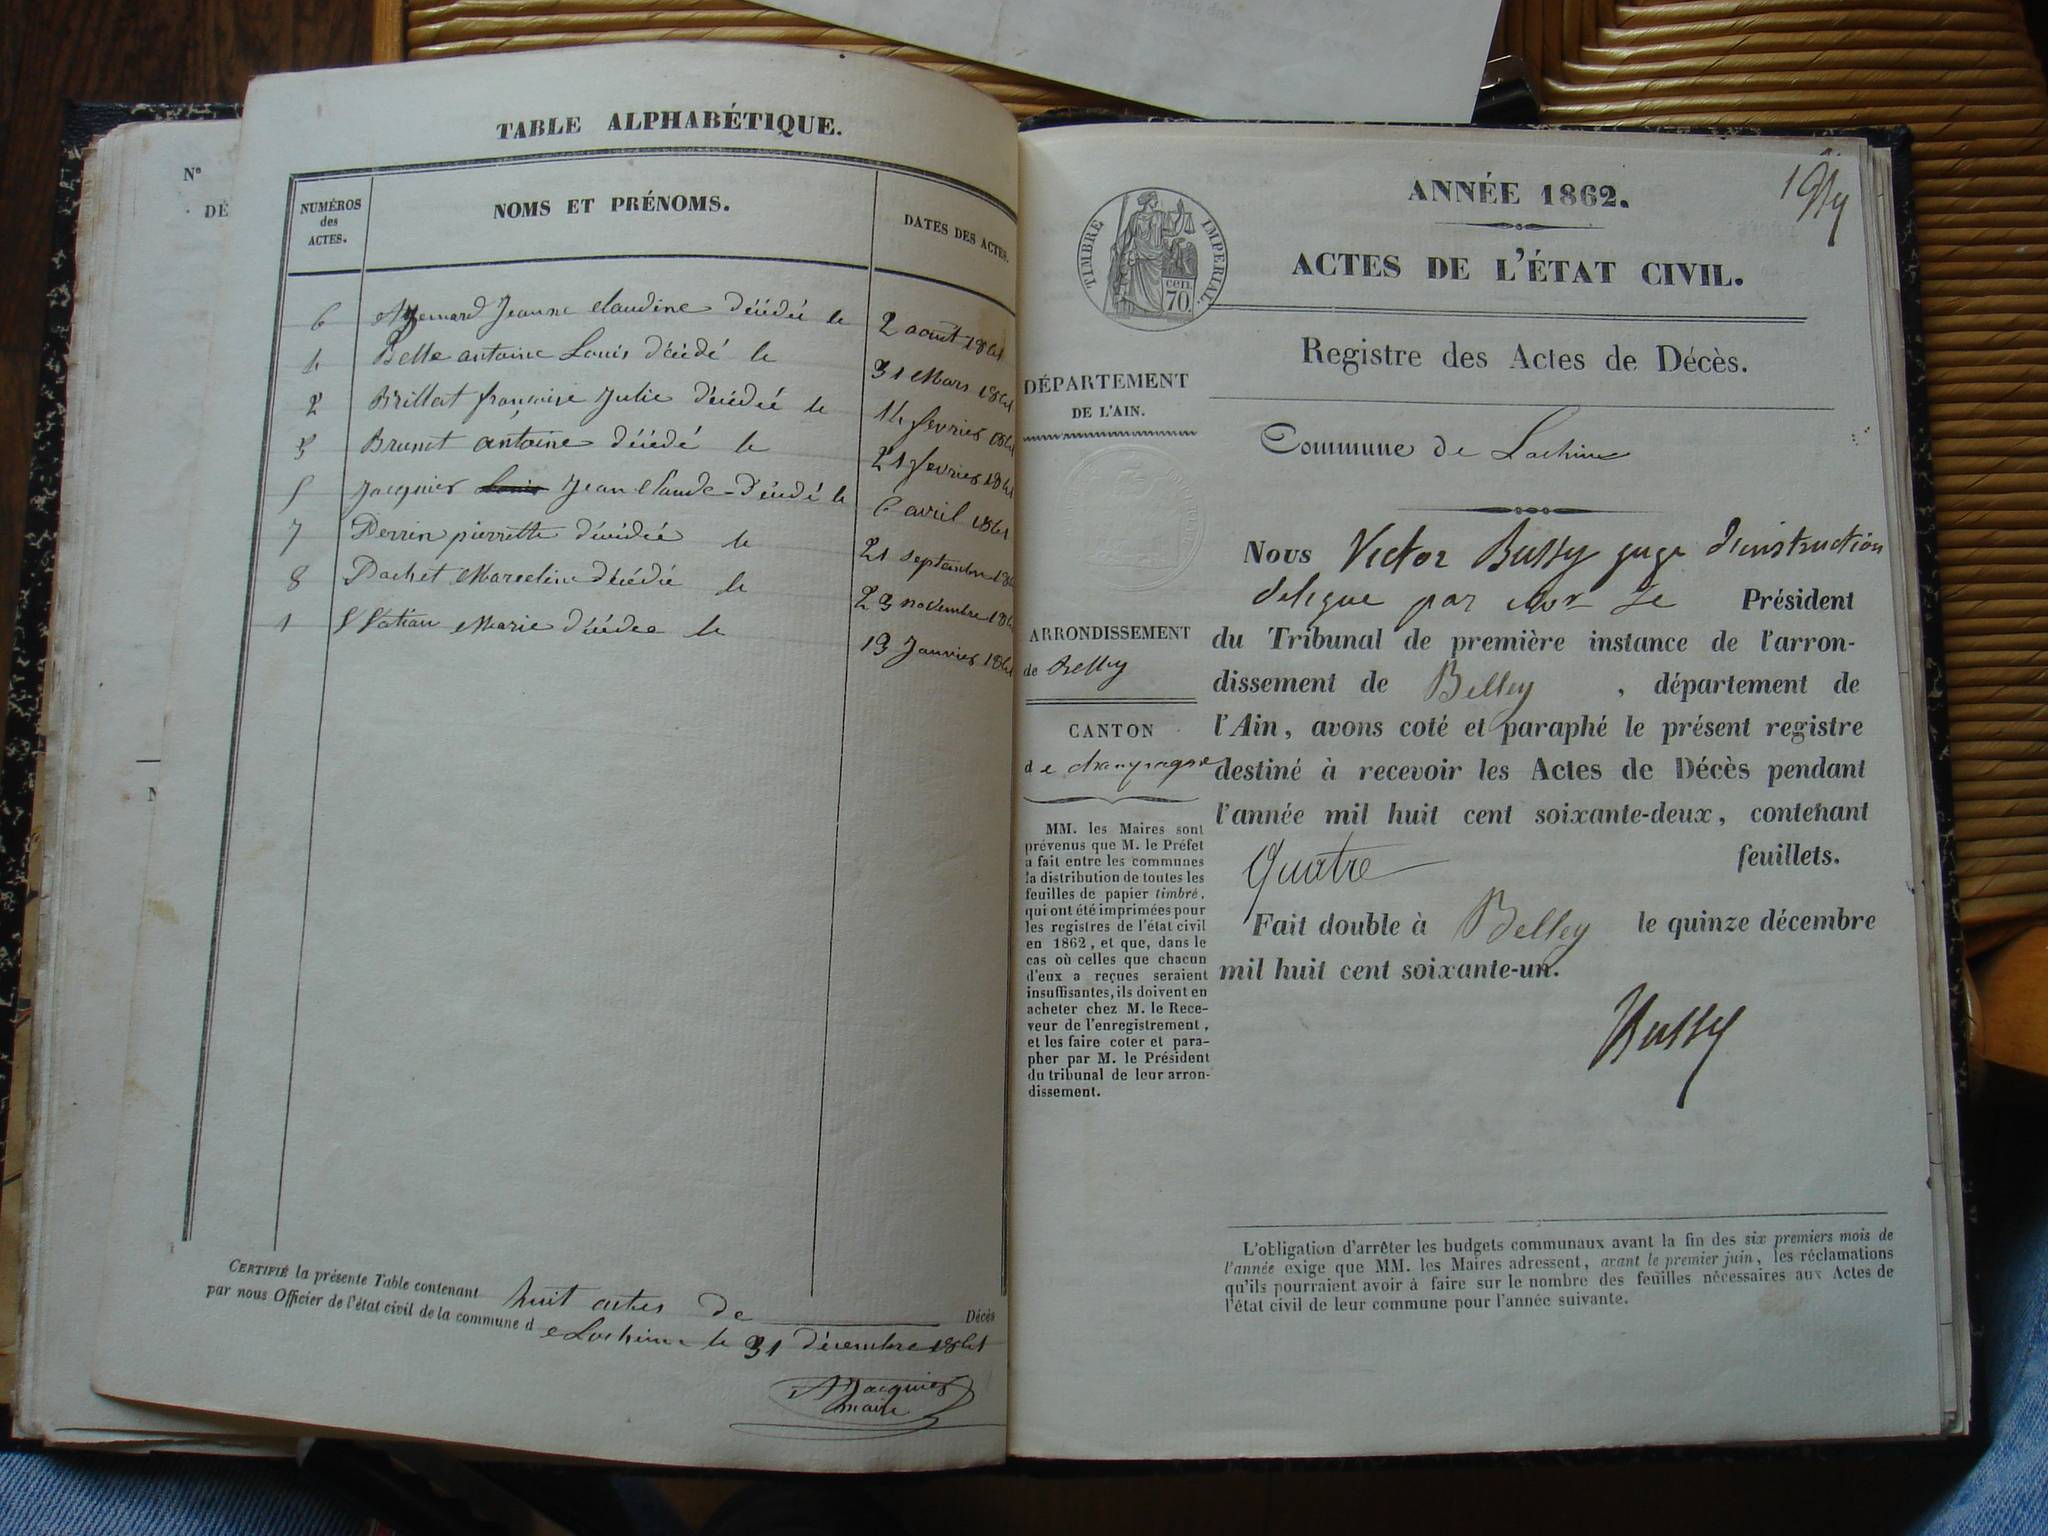 Nº
DÉ
TABLE ALPHABÉTIQUE.
NUMÉROS
des
ACTES.
NOMS ET PRÉNOMS.
DATES DES ACTES.
6 Jeanne Claudine décédée le 2 août 1861
4 Belle antoine Louis décédé le 31 Mars 1861
2 Brillat françoise Julie décédée le 14 février 1861
3 Brunet antoine décédé le 21 février 1861
5 Jacquier Louis Jean Claude décédé le 6 avril 1861
7 Perrin pierrette décédée le 21 septembre 186
8 Pochet Marceline décédée le 23 novembre 186
1 Marie décédée le 13 Janvier 1861
CERTIFIÉ la présente Table contenant huit actes de Décès
par nous Officier de l'état civil de la commune de Lochieu le 31 décembre 1861
Jacquier
maire
19
ANNÉE 1862.
TIMBRE IMPERIAL
CEN.
70.
ACTES DE L'ÉTAT CIVIL.
Registre des Actes de Décès.
DÉPARTEMENT
DE L'AIN.
Commune de Lochieu
Nous Victor Bussy juge d'instruction
délégué par Mr Le Président
du Tribunal de première instance de l'arron-
dissement de Belley, département de
l'Ain, avons coté et paraphé le présent registre
destiné à recevoir les Actes de Décès pendant
l'année mil huit cent soixante-deux, contenant
Quatre feuillets.
Fait double à Belley le quinze décembre
mil huit cent soixante-un.
Bussy
ARRONDISSEMENT
de Belley
CANTON
de champagne
MM. les Maires sont
prévenus que M. le Préfet
a fait entre les communes
la distribution de toutes les
feuilles de papier timbré,
qui ont été imprimées pour
les registres de l'état civil
en 1862, et que, dans le
cas où celles que chacun
d'eux a reçues seraient
insuffisantes, ils doivent en
acheter chez M. le Rece-
veur de l'enregistrement,
et les faire coter et para-
pher par M. le Président
du tribunal de leur arron-
dissement.
L'obligation d'arrêter les budgets communaux avant la fin des six premiers mois de
l'année exige que MM. les Maires adressent, avant le premier juin, les réclamations
qu'ils pourraient avoir à faire sur le nombre des feuilles nécessaires aux Actes de
l'état civil de leur commune pour l'année suivante.